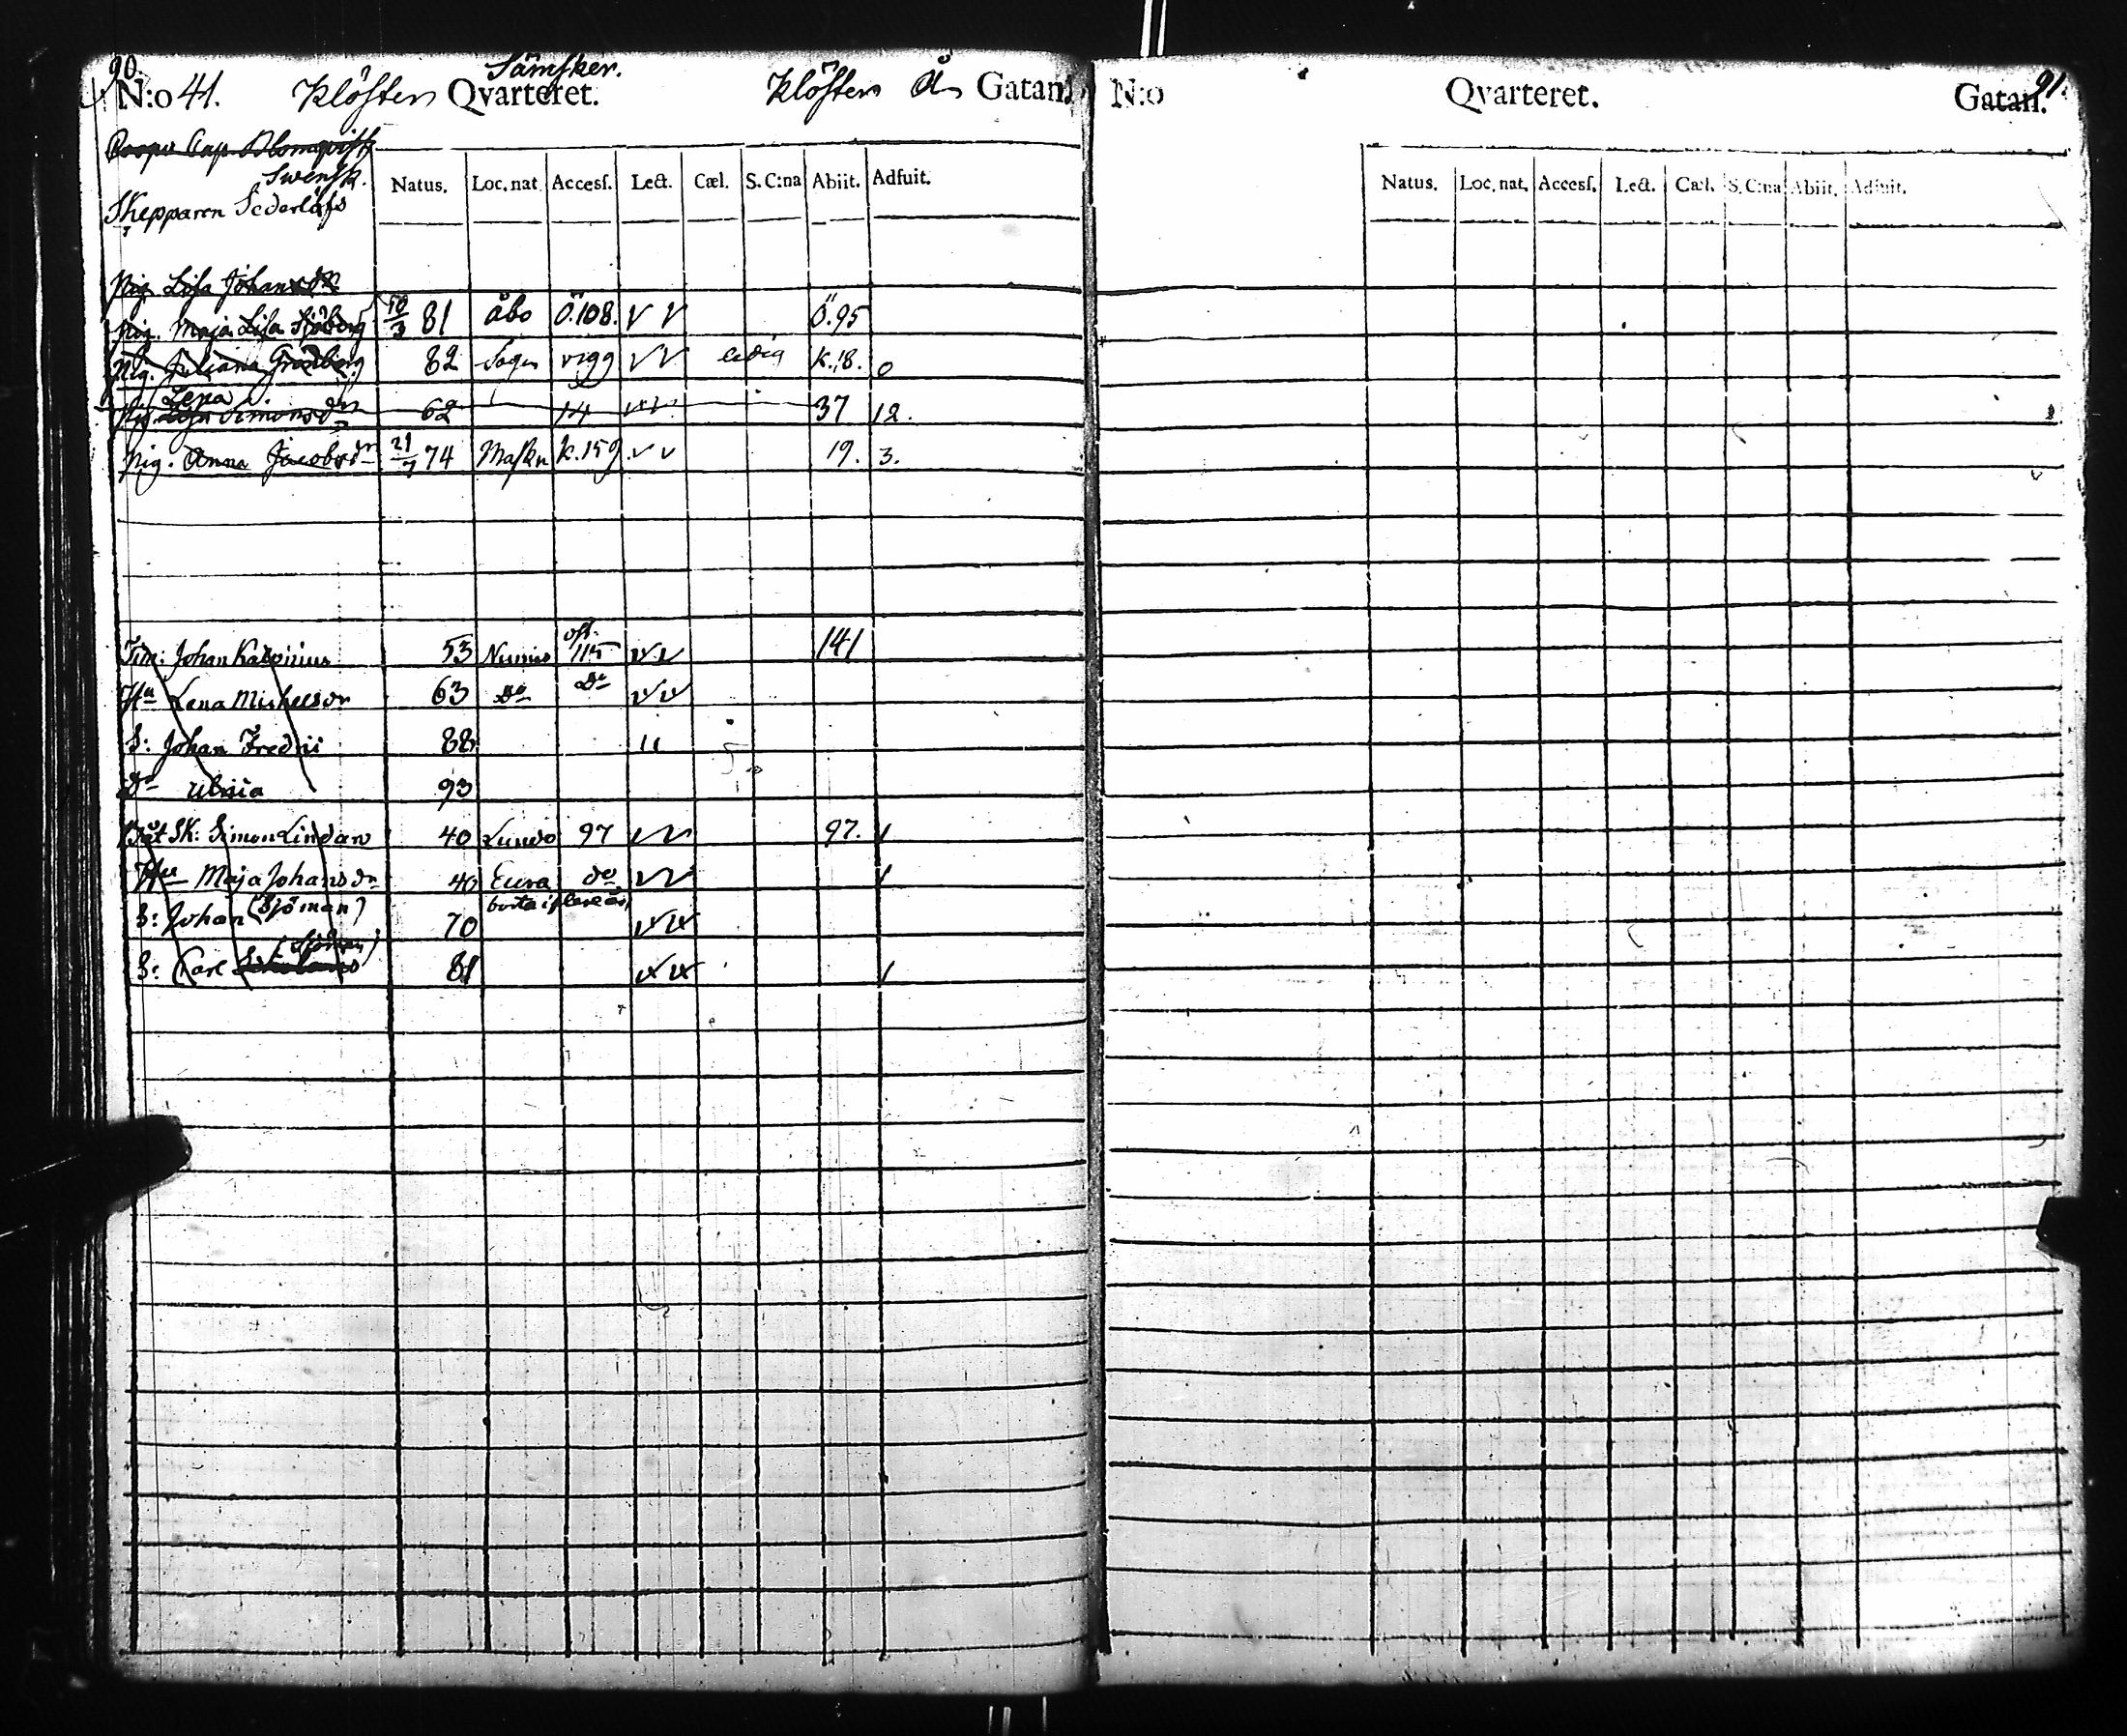 90.
Sämsker.
N:o 41. Klöster Qvarteret. Klöster Å Gatan.
Cap. Blomqvist
Swensk.
Skepparen Sederlöfs
Natus. Loc. nat. Accesſ. Lect. Cæl. S. C:na Abiit. Adfuit.
Pig. Lisa Johansdr
Pig. Maja Lisa Sjöberg 10/3 81 Åbo Ö.108. V V Ö.95
Pig. Juliana Grönberg 82 Sagu vigg V V ledig K.18. 0
Lena
Pig. Simonsdr 62 14 37 12.
Pig. Anna Jacobsdr 21/7 74 Masku K.159 v v 19. 3.
Tim: Johan 53 Numis 115 141
Hu Lena Michelsdr 63 Do Do
S: Johan Fredric 88 ıı
Dr Ulrica 93
Båt Sk: Simon Lindan 40 Lundo 97 97. 1
Hu Maja Johansdr 40 Eura do 1
borta i flere år,
S: Johan (Sjöman) 70
(Sjöman)
S: Carl 81 1
91.
N:o Qvarteret. Gatan.
Natus. Loc. nat. Accesſ. Lect. Cæl. S. C:na Abiit. Adfuit.